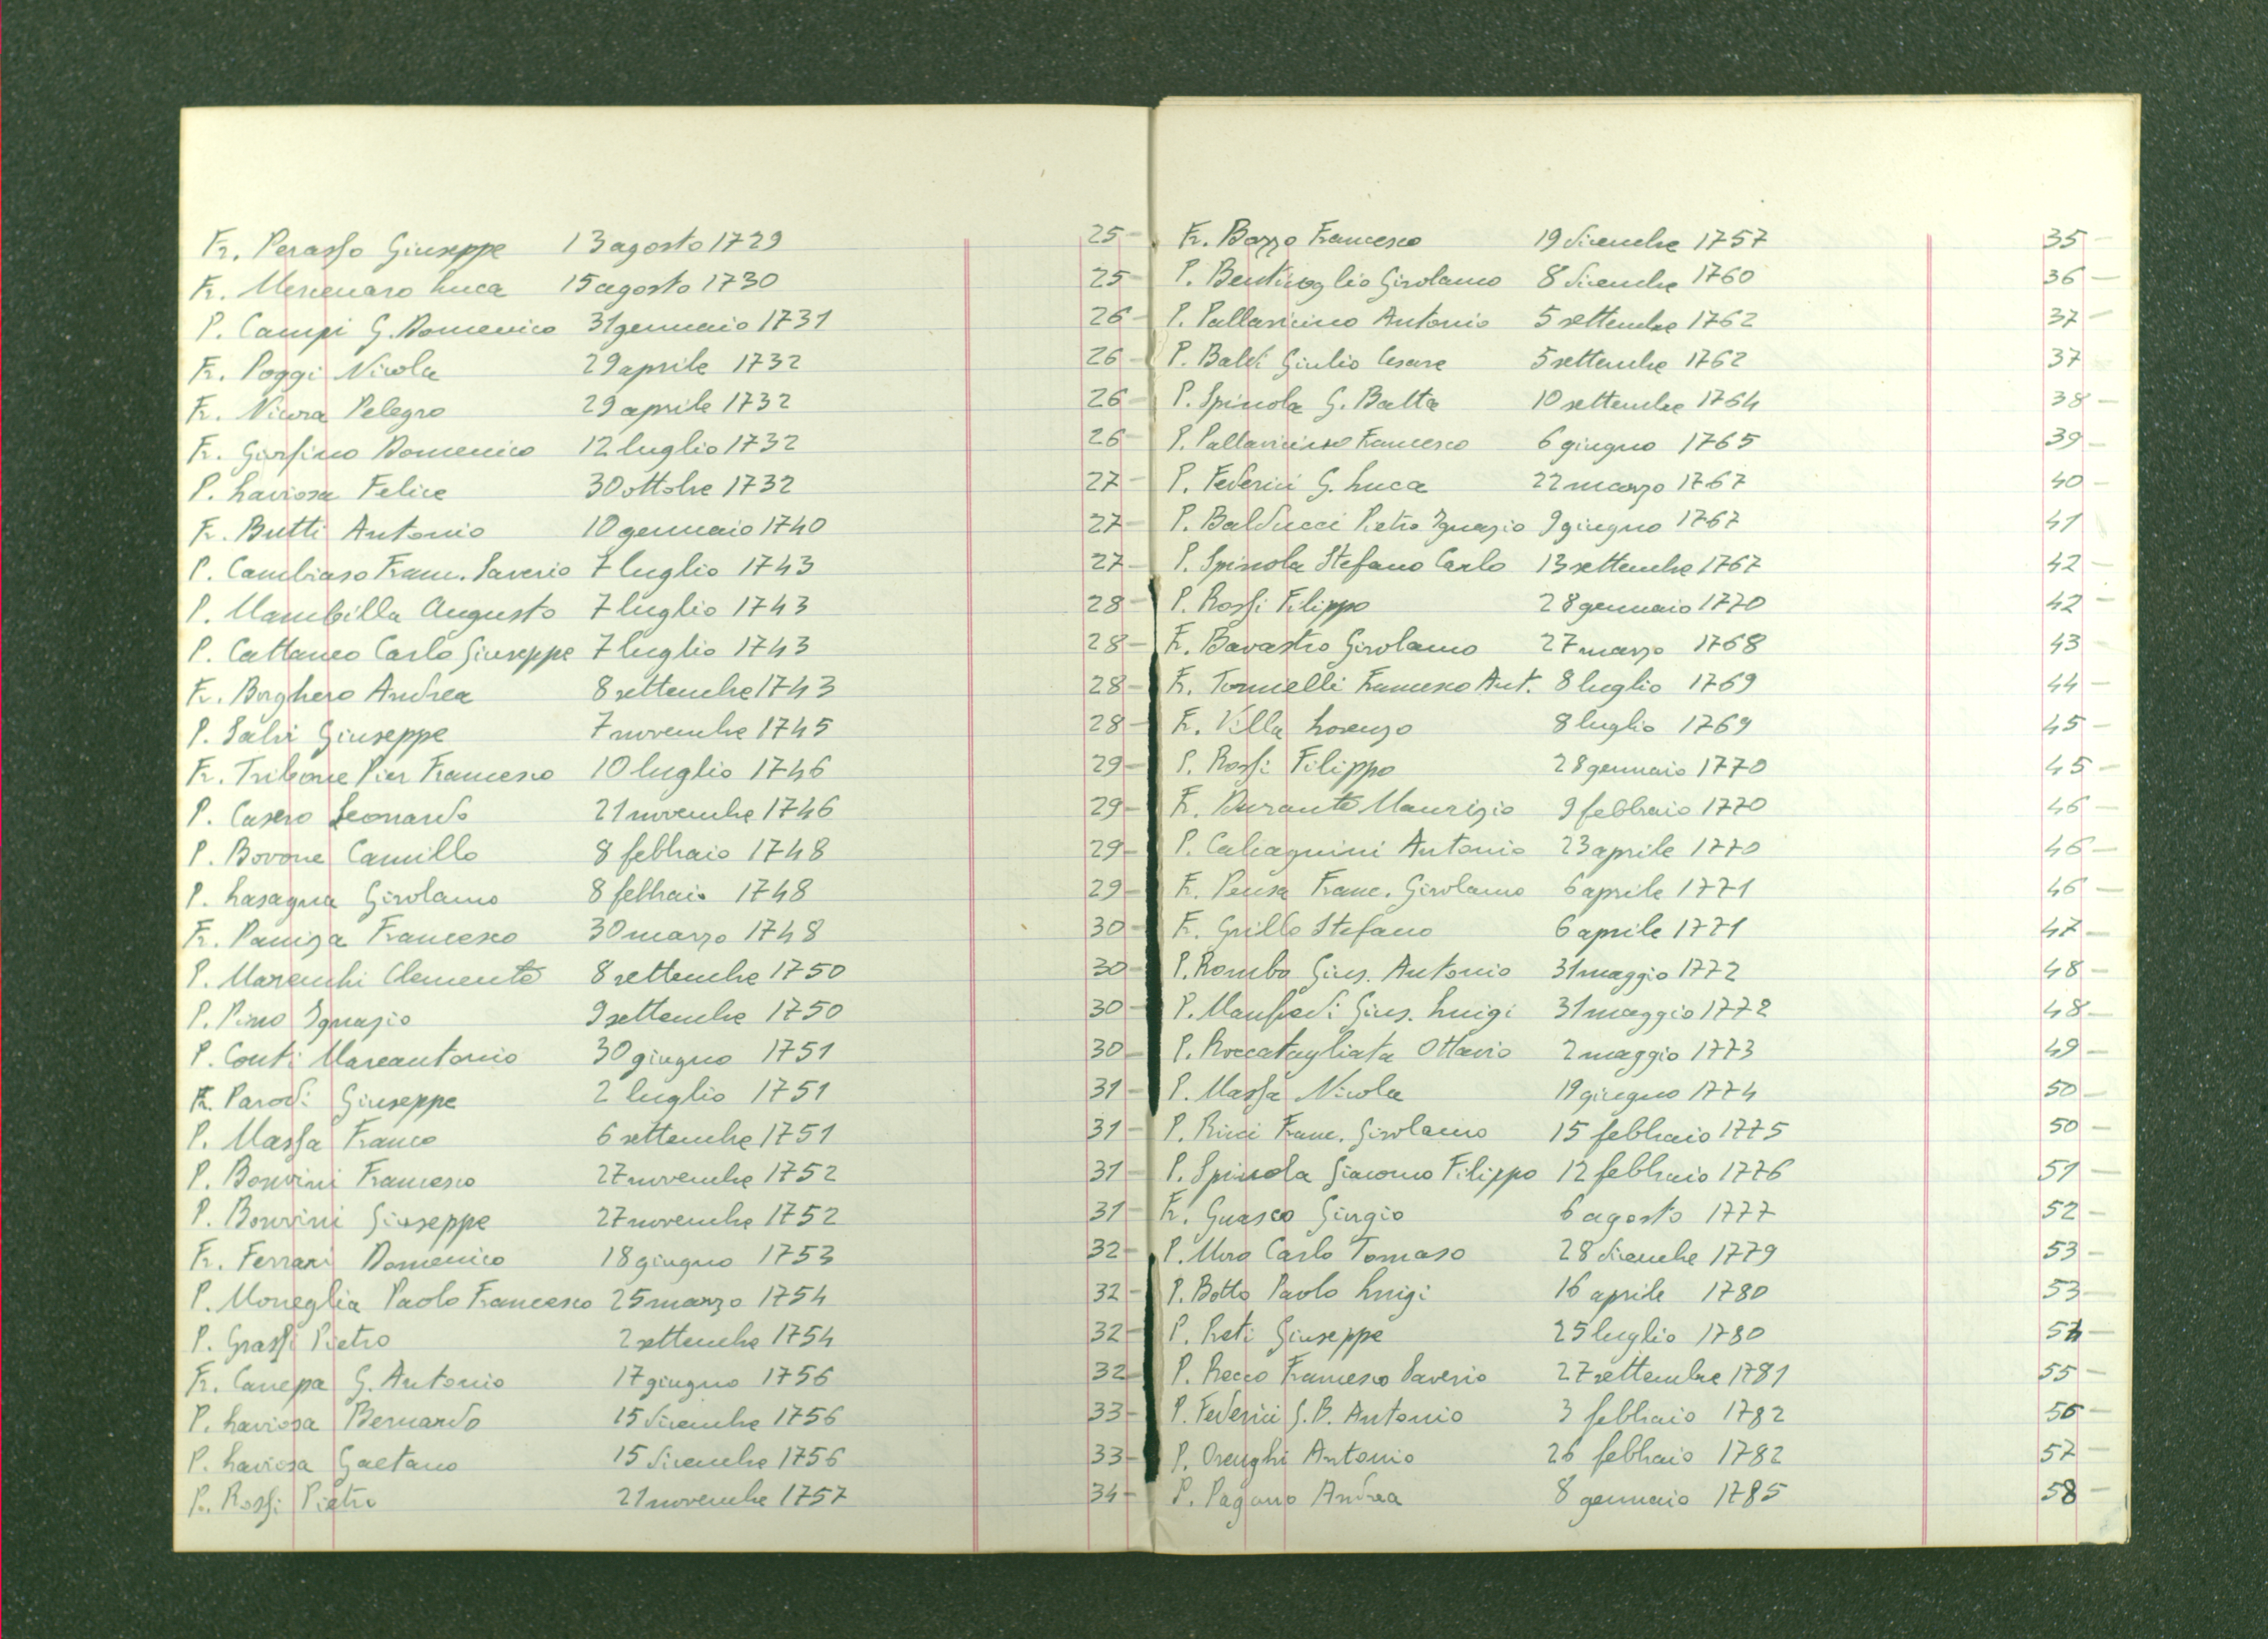 Fr. Perasso Giuseppe 13 agosto 1729 25-
Fr. Mercenaro Luca 15 agosto 1730 25-
P. Campi G. Domenico 31 gennaio 1731 26-
Fr. Poggi Nicola 29 aprile 1732 26-
Fr. Nicora Pelegro 29 aprile 1732 26-
Fr. Domenico 12 luglio 1732 26-
P. Laviosa Felice 30 ottobre 1732 27-
Fr. Butti Antonio 10 gennaio 1740 27-
P. Cambiaso Franc. Saverio 7 luglio 1743 27-
P. Mambilla Augusto 7 luglio 1743 28-
P. Cattaneo Carlo Giuseppe 7 luglio 1743 28-
Fr. Borghero Andrea 8 settembre 1743 28-
P. Salvi Giuseppe 7 novembre 1745 28-
Fr. Tribone Pier Francesco 10 luglio 1746 29-
P. Casero Leonardo 21 novembre 1746 29-
P. Bovone Camillo 8 febbraio 1748 29-
P. Lasagna Girolamo 8 febbraio 1748 29-
Fr. Paniza Francesco 30 marzo 1748 30-
P. Marenchi Clemente 8 settembre 1750 30-
P. Pino Ignazio 9 settembre 1750 30-
P. Conti Marcantonio 30 giugno 1751 30-
Fr. Parodi Giuseppe 2 luglio 1751 31-
P. Massa Franco 6 settembre 1751 31-
P. Bonvini Francesco 27 novembre 1752 31-
P. Bonvini Giuseppe 27 novembre 1752 31-
Fr. Ferrari Domenico 18 giugno 1753 32-
P. Moneglia Paolo Francesco 25 marzo 1754 32-
P. Grassi Pietro 2 settembre 1754 32-
Fr. Canepa G. Antonio 17 giugno 1756 32-
P. Laviosa Bernardo 15 dicembre 1756 33-
P. Laviosa Gaetano 15 dicembre 1756 33-
Fr. Rossi Pietro 21 novembre 1757 34-
Fr. Bozzo Francesco 19 dicembre 1757 35-
P. Bentivoglio Girolamo 8 dicembre 1760 36-
P. Pallavicino Antonio 5 settembre 1762 37-
P. Baldi Giulio Cesare 5 settembre 1762 37
P. Spinola G. Batta 10 settembre 1764 38-
P. Pallavicino Francesco 6 giugno 1765 39-
P. Federici G. Luca 22 marzo 1767 40-
P. Balducci Pietro Ignazio 9 giugno 1767 41
P. Spinola Stefano Carlo 13 settembre 1767 42-
P. Rossi Filippo 28 gennaio 1770 42-
Fr. Bavastro Girolamo 27 marzo 1768 43
Fr. Tornielli Francesco Ant. 8 luglio 1769 44-
Fr. Villa Lorenzo 8 luglio 1769 45-
P. Rossi Filippo 28 gennaio 1770 45-
Fr. Durante Maurizio 9 febbraio 1770 46-
P. Calcagnini Antonio 23 aprile 1770 46-
Fr. Pensa Franc. Girolamo 6 aprile 1771 46-
Fr. Grillo Stefano 6 aprile 1771 47-
P. Rombo Gius. Antonio 31 maggio 1772 48-
P. Manfredi Gius. Luigi 31 maggio 1772 48-
P. Roccatagliata Ottavio 2 maggio 1773 49-
P. Massa Nicola 19 giugno 1774 50-
P. Ricci Franc. Girolamo 15 febbraio 1775 50-
P. Spinola Giacomo Filippo 12 febbraio 1776 51-
Fr. Guasco Giorgio 6 agosto 1777 52-
P. Carlo Tomaso 28 dicembre 1779 53-
P. Botto Paolo Luigi 16 aprile 1780 53-
P. Preti Giuseppe 25 luglio 1780 54-
P. Recco Francesco Saverio 27 settembre 1781 55-
P. Federici G.B. Antonio 3 febbraio 1782 56-
P. Orenghi Antonio 26 febbraio 1782 57-
P. Pagano Andrea 8 gennaio 1785 58-